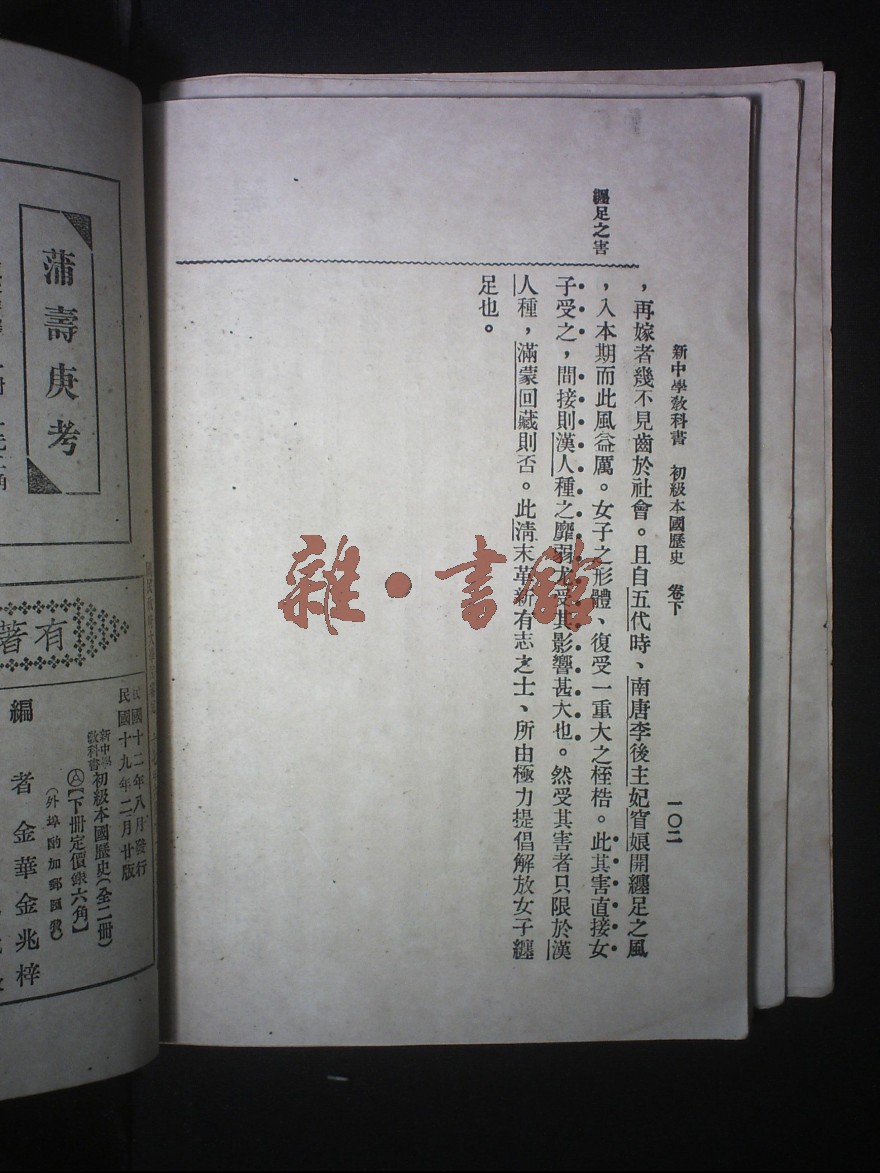 新中學教科書 初級本國歷史 卷下 一〇二
纏足之害
，再嫁者幾不見齒於社會。且自五代時、南唐李後主妃窅娘開纏足之風
，入本期而此風益厲。女子之形體、復受一重大之桎梏。此其害直接女
子受之，間接則漢人種之靡弱尤受其影響甚大也。然受其害者只限於漢
人種，滿蒙回藏則否。此清末革新有志之士、所由極力提倡解放女子纏
足也。
雜·書館
蒲壽庚考
有著
民國十二年八月發行
民國十九年二月廿版
新中學教科書初級本國歷史(全二冊)
【下冊定價銀六角】
(外埠酌加郵匯費)
編者金華金兆梓